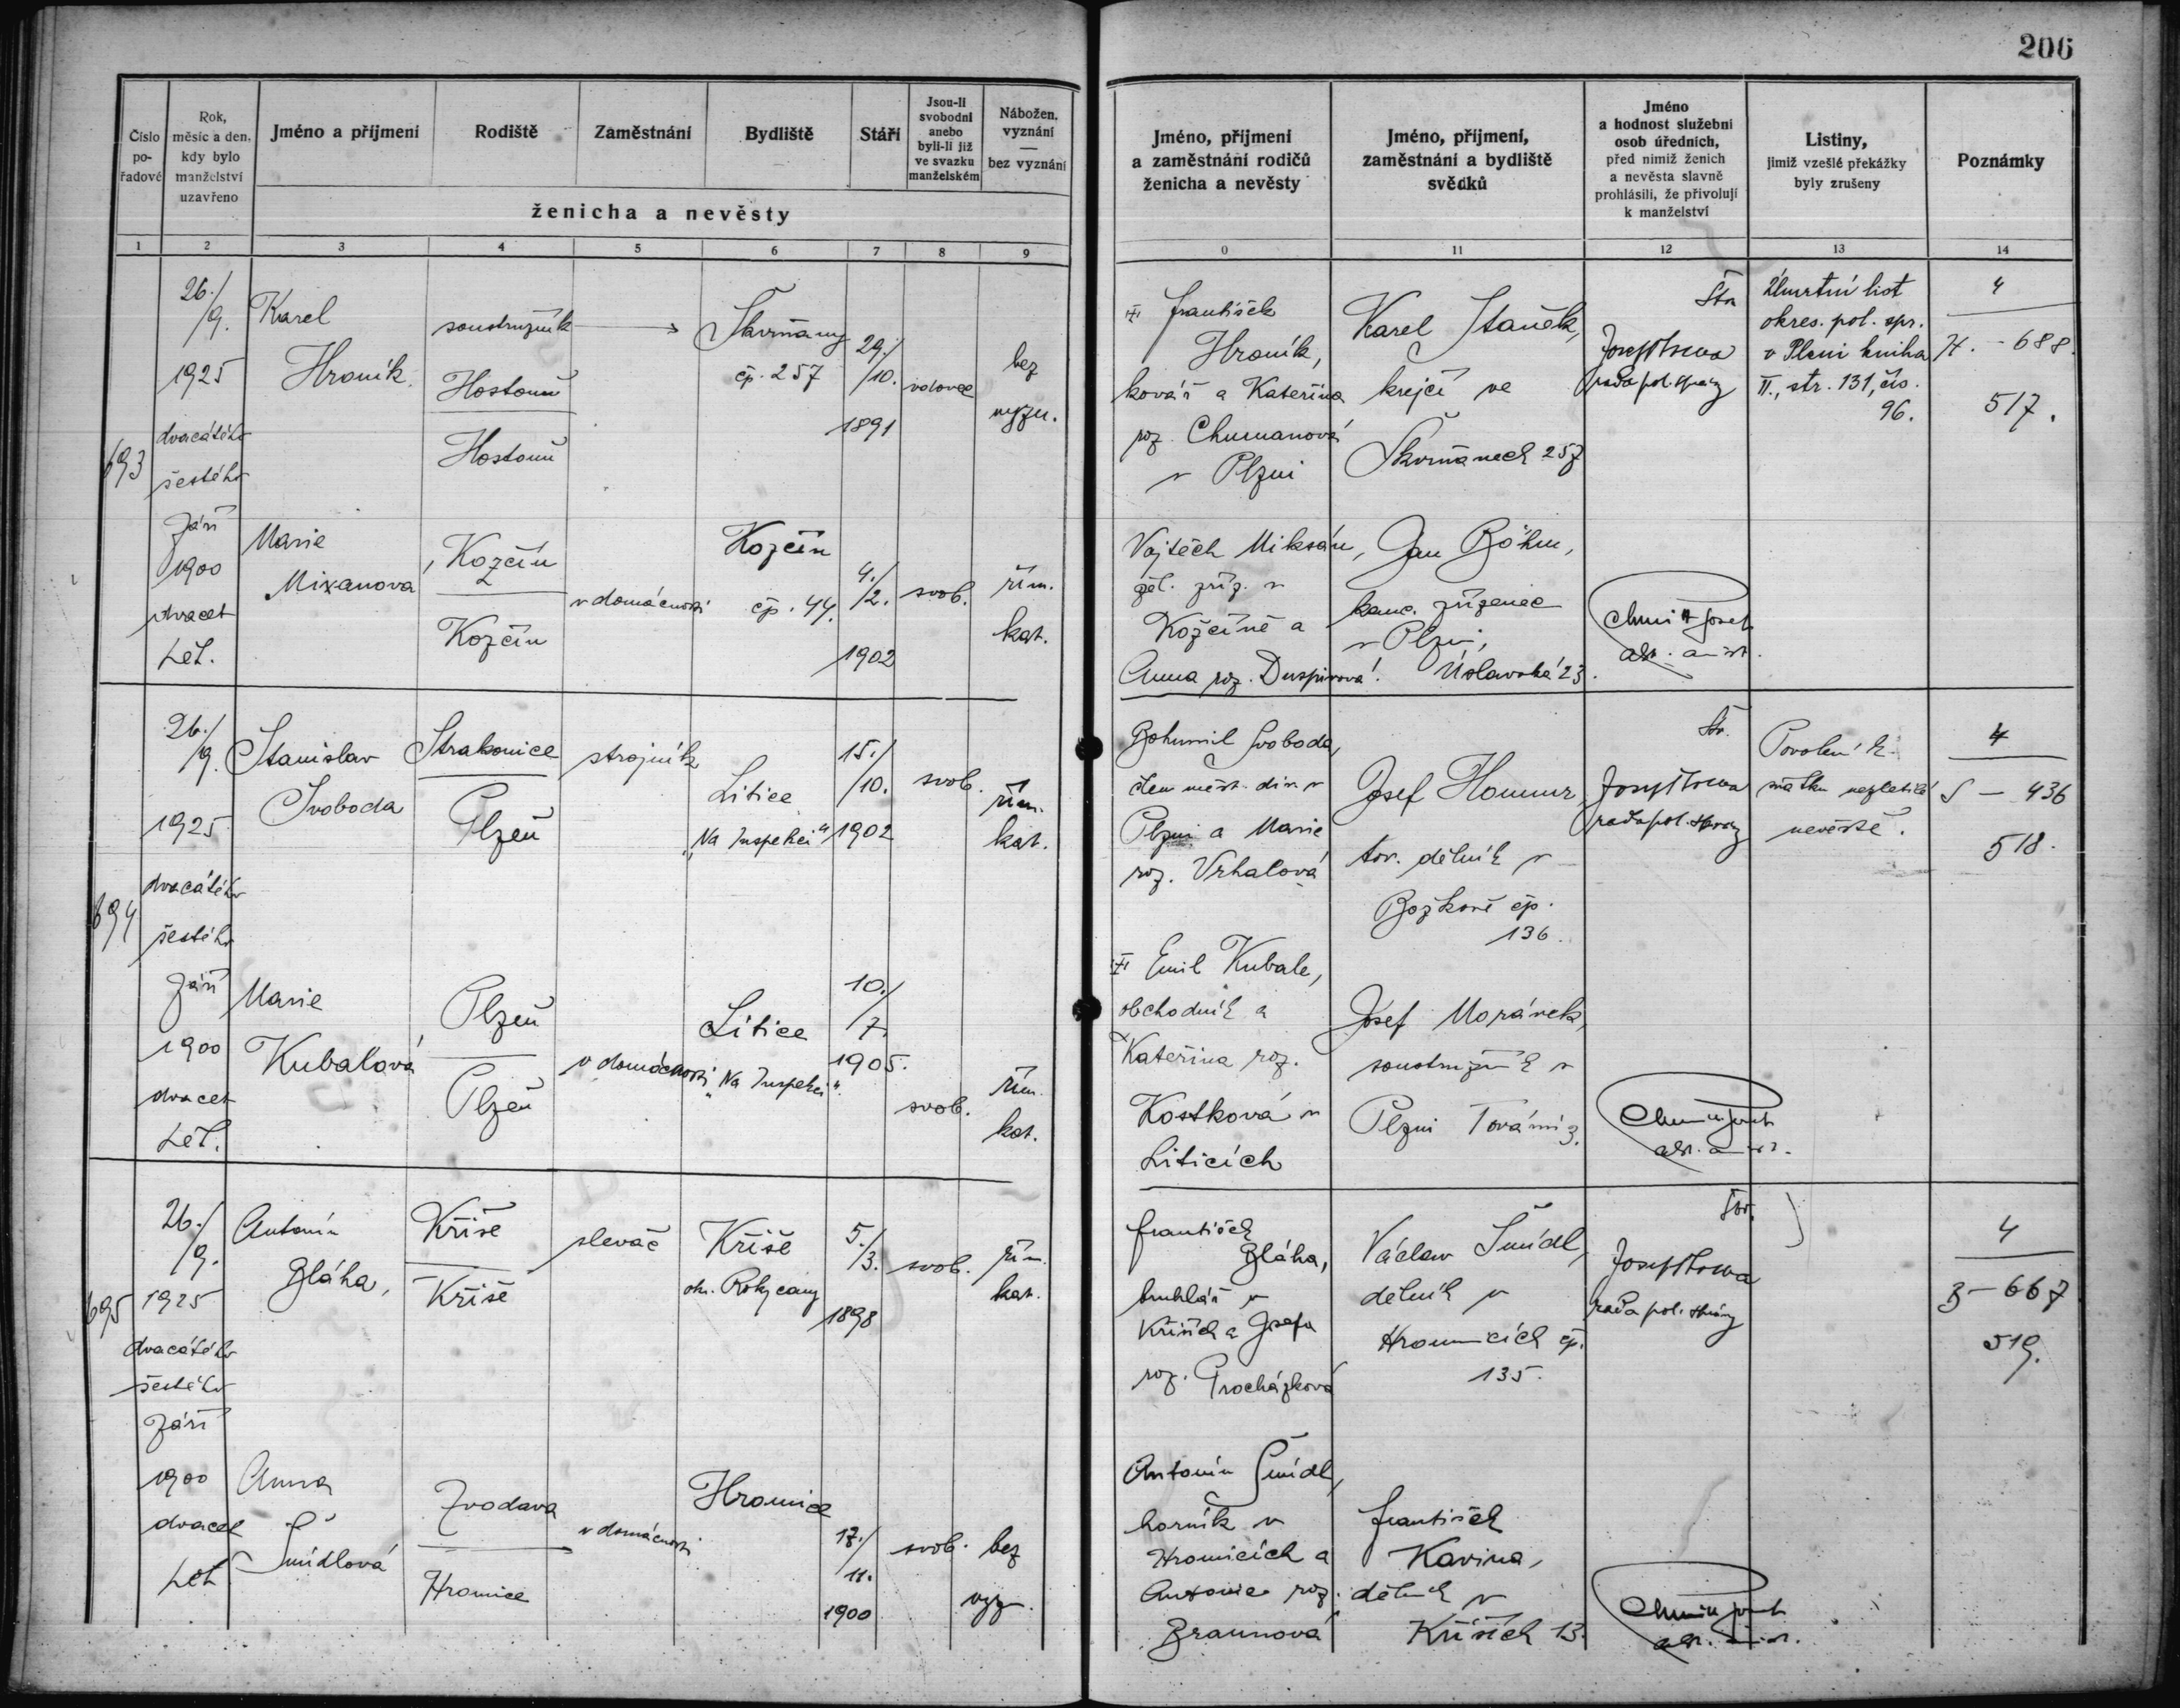 206
Číslo pořadové
Rok, měsíc a den, kdy bylo manželství uzavřeno
Jméno a příjmení
Rodiště
Zaměstnání
Bydliště
Stáří
Jsou-li svobodni anebo byli-li již ve svazku manželském
Nábožen. vyznání — bez vyznání
ženicha a nevěsty
Jméno, příjmení a zaměstnání rodičů ženicha a nevěsty
Jméno, příjmení, zaměstnání a bydliště svědků
Jméno a hodnost služební osob úředních, před nimiž ženich a nevěsta slavně prohlásili, že přivolují k manželství
Listiny, jimiž vzešlé překážky byly zrušeny
Poznámky
1 2 3 4 5 6 7 8 9
0 11 12 13 14
693
26./9.
1925
dvacátého
šestého
září
1900
dvacet
pět.
Karel
Hroník
soustružník
Hostouň
Hostouň
Škvrňany
čp. 257
29./10.
1891
vdovec
bez
vyzn.
František
Hroník,
kovář a Kateřina
roz. Chumanová
v Plzni
Karel Staněk,
krejčí ve
Škvrňanech 257
rada pol. správy
Úmrtní list
okres. pol. spr.
v Plzni kniha
II., str. 131, čís.
96.
4
H. - 688.
517.
Marie
Mixanova
Kozčín
Kozčín
v domácnosti
Kozčín
čp. 44.
4./2.
1902
svob.
řím.
kat.
Vojtěch Miksán,
žel. zříz. v
Kozčíně a
Anna roz. Duspivová.
Jan Böhm,
kanc. zřízenec
v Plzni,
Úslavská 23.
694
26./9.
1925
dvacátého
šestého
září
1900
dvacet
pět.
Stanislav
Svoboda
Strakonice
Plzeň
strojník
Litice
„Na Inspekci"
15./10.
1902
svob.
řím.
kat.
Bohumil Svoboda,
člen měst. div. v
Plzni a Marie
roz. Vrhalová
Josef Hommr,
tov. dělník v
Božkově čp.
136.
rada pol. správy
Povolení k
sňatku nezletilé
nevěstě.
4
S - 436
518.
Marie
Kubalová
Plzeň
Plzeň
v domácnosti
Litice
„Na Inspekci".
10./7.
1905.
svob.
řím.
kat.
Emil Kubale,
obchodník a
Kateřina roz.
Kostková v
Liticích
Josef Morávek,
soustružník v
Plzni Tovární 3.
695
26./9.
1925
dvacátého
šestého
září
1900
dvacet
pět
Antonín
Bláha,
Kříše
Kříše
slevač
Kříše
okr. Rokycany
5./3.
1898
svob.
řím.
kat.
František
Bláha,
truhlář v
Kříších a Josefa
roz. Procházková
Václav Šmídl,
dělník v
Hromnicích čp.
135.
rada pol. správy
4
B - 667
519.
Anna
Šmídlová
Hromice
v domácnosti
Hromice
17./11.
1900
svob.
bez
vyzn.
Antonín Šmídl,
horník v
Hromicích a
Antonie roz.
Braunová
František
Kavina,
dělník v
Kříších 13.